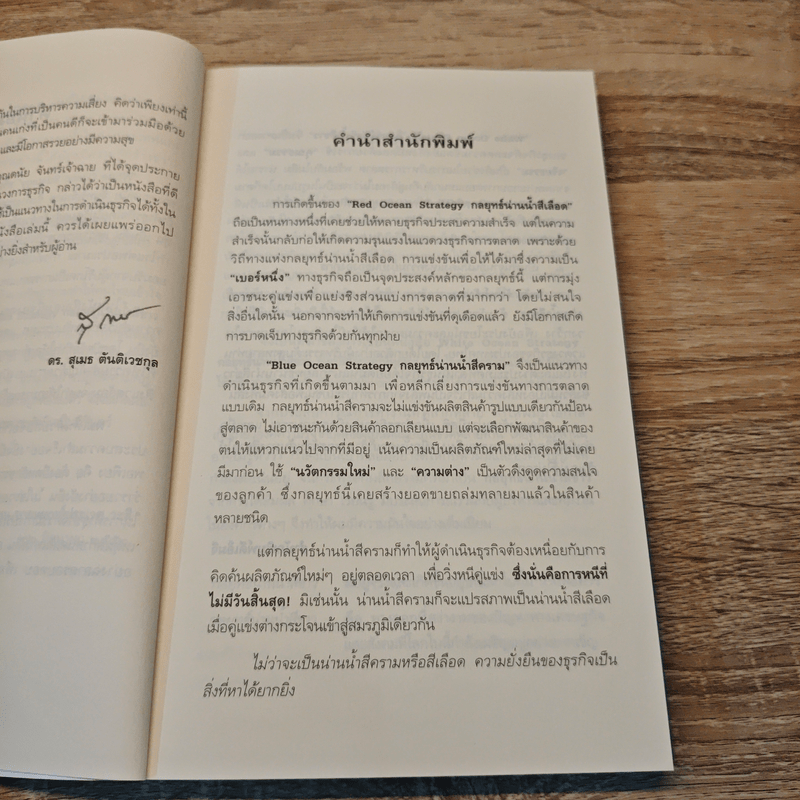 นในการบริหารความเสี่ยง คิดว่าเพียงเท่านี้
คนเก่งที่เป็นคนดีก็จะเข้ามาร่วมมือด้วย
และมีโอกาสรวยอย่างมีความสุข
ดนัย จันทร์เจ้าฉาย ที่ได้จุดประกาย
วงการธุรกิจ กล่าวได้ว่าเป็นหนังสือที่ดี
เป็นแนวทางในการดำเนินธุรกิจได้ทั้งใน
หนังสือเล่มนี้ ควรได้เผยแพร่ออกไป
ยิ่งสำหรับผู้อ่าน
ดร. สุเมธ ตันติเวชกุล
คำนำสำนักพิมพ์
การเกิดขึ้นของ "Red Ocean Strategy กลยุทธ์น่านน้ำสีเลือด"
ถือเป็นหนทางหนึ่งที่เคยช่วยให้หลายธุรกิจประสบความสำเร็จ แต่ในความ
สำเร็จนั้นกลับก่อให้เกิดความรุนแรงในแวดวงธุรกิจการตลาด เพราะด้วย
วิถีทางแห่งกลยุทธ์น่านน้ำสีเลือด การแข่งขันเพื่อให้ได้มาซึ่งความเป็น
"เบอร์หนึ่ง" ทางธุรกิจถือเป็นจุดประสงค์หลักของกลยุทธ์นี้ แต่การมุ่ง
เอาชนะคู่แข่งเพื่อแย่งชิงส่วนแบ่งการตลาดที่มากกว่า โดยไม่สนใจ
สิ่งอื่นใดนั้น นอกจากจะทำให้เกิดการแข่งขันที่ดุเดือดแล้ว ยังมีโอกาสเกิด
การบาดเจ็บทางธุรกิจด้วยกันทุกฝ่าย
"Blue Ocean Strategy กลยุทธ์น่านน้ำสีคราม" จึงเป็นแนวทาง
ดำเนินธุรกิจที่เกิดขึ้นตามมา เพื่อหลีกเลี่ยงการแข่งขันทางการตลาด
แบบเดิม กลยุทธ์น่านน้ำสีครามจะไม่แข่งขันผลิตสินค้ารูปแบบเดียวกันป้อน
สู่ตลาด ไม่เอาชนะกันด้วยสินค้าลอกเลียนแบบ แต่จะเลือกพัฒนาสินค้าของ
ตนให้แหวกแนวไปจากที่มีอยู่ เน้นความเป็นผลิตภัณฑ์ใหม่ล่าสุดที่ไม่เคย
มีมาก่อน ใช้ "นวัตกรรมใหม่" และ "ความต่าง" เป็นตัวดึงดูดความสนใจ
ของลูกค้า ซึ่งกลยุทธ์นี้เคยสร้างยอดขายถล่มทลายมาแล้วในสินค้า
หลายชนิด
แต่กลยุทธ์น่านน้ำสีครามก็ทำให้ผู้ดำเนินธุรกิจต้องเหนื่อยกับการ
คิดค้นผลิตภัณฑ์ใหม่ๆ อยู่ตลอดเวลา เพื่อวิ่งหนีคู่แข่ง ซึ่งนั่นคือการหนีที่
ไม่มีวันสิ้นสุด! มิเช่นนั้น น่านน้ำสีครามก็จะแปรสภาพเป็นน่านน้ำสีเลือด
เมื่อคู่แข่งต่างกระโจนเข้าสู่สมรภูมิเดียวกัน
ไม่ว่าจะเป็นน่านน้ำสีครามหรือสีเลือด ความยั่งยืนของธุรกิจเป็น
สิ่งที่หาได้ยากยิ่ง